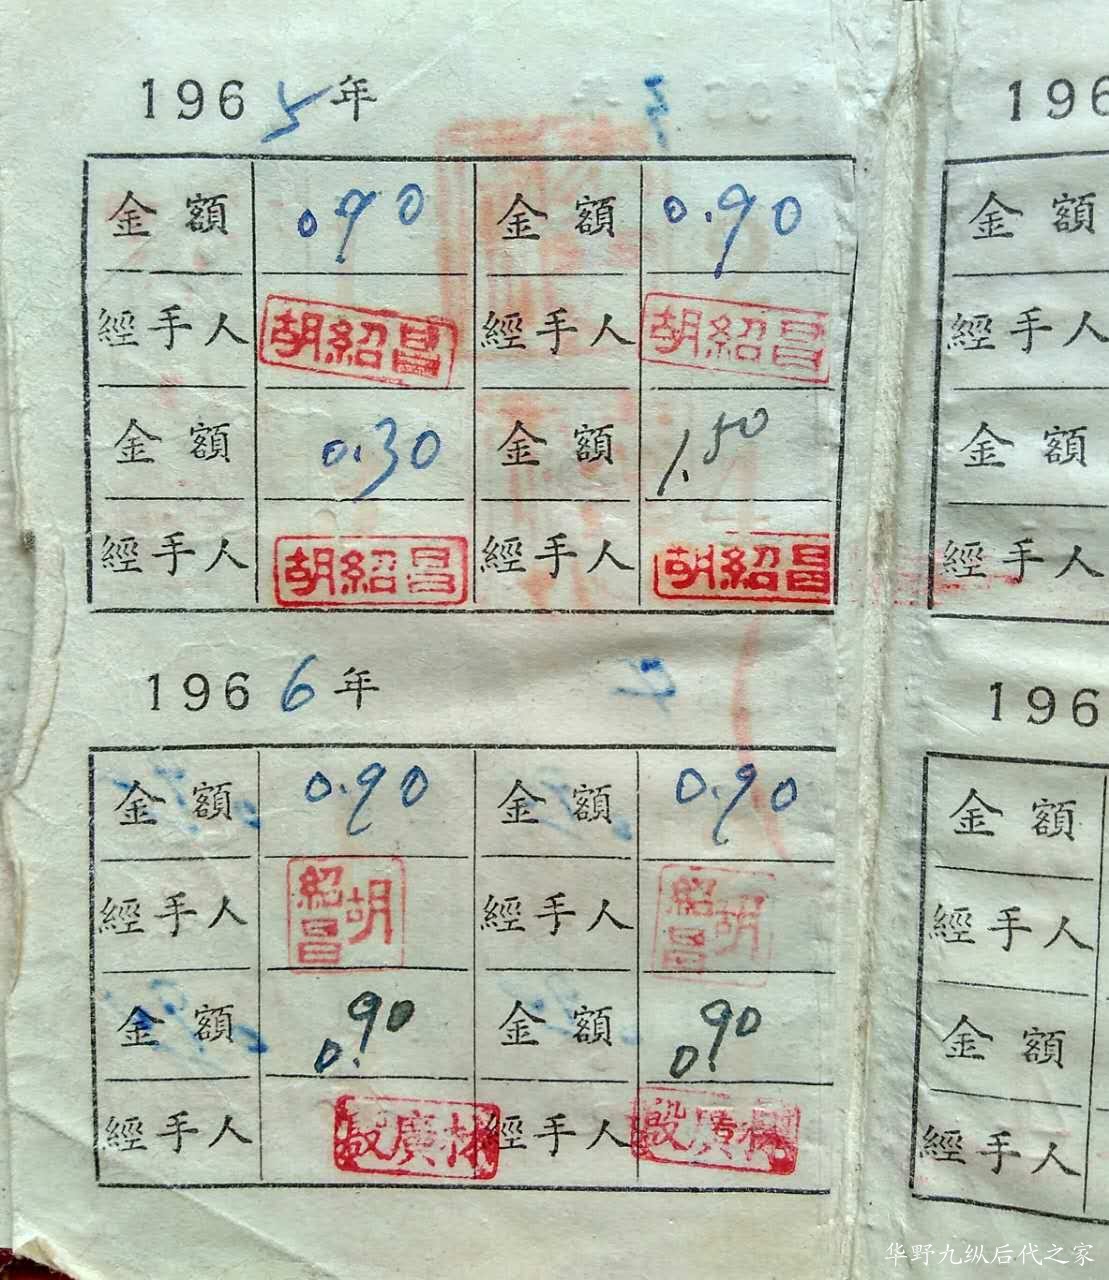 1965年
金額 0.90 金額 0.90
經手人 胡紹昌 經手人 胡紹昌
金額 0.30 金額 1.50
經手人 胡紹昌 經手人 胡紹昌
1966年
金額 0.90 金額 0.90
經手人 胡紹昌 經手人 胡紹昌
金額 0.90 金額 0.90
經手人 殷廣林 經手人 殷廣林
196
金額
經手人
金額
經手人
196
金額
經手人
金額
經手人
华野九纵后代之家